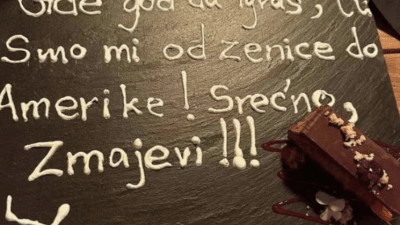 Gdje god da igraš, tu
Smo mi od zenice do
Amerike! Srećno,
Zmajevi!!!